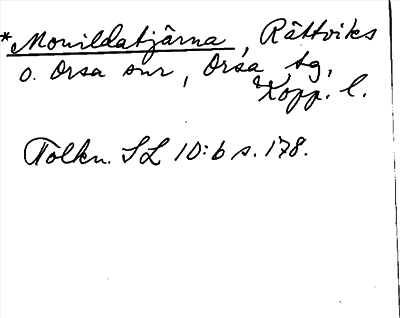 *Mouildatjärna, Rättviks
o. Orsa snr, Orsa tg,
Kopp. l.
Tolkn. SL 10:6 s. 178.